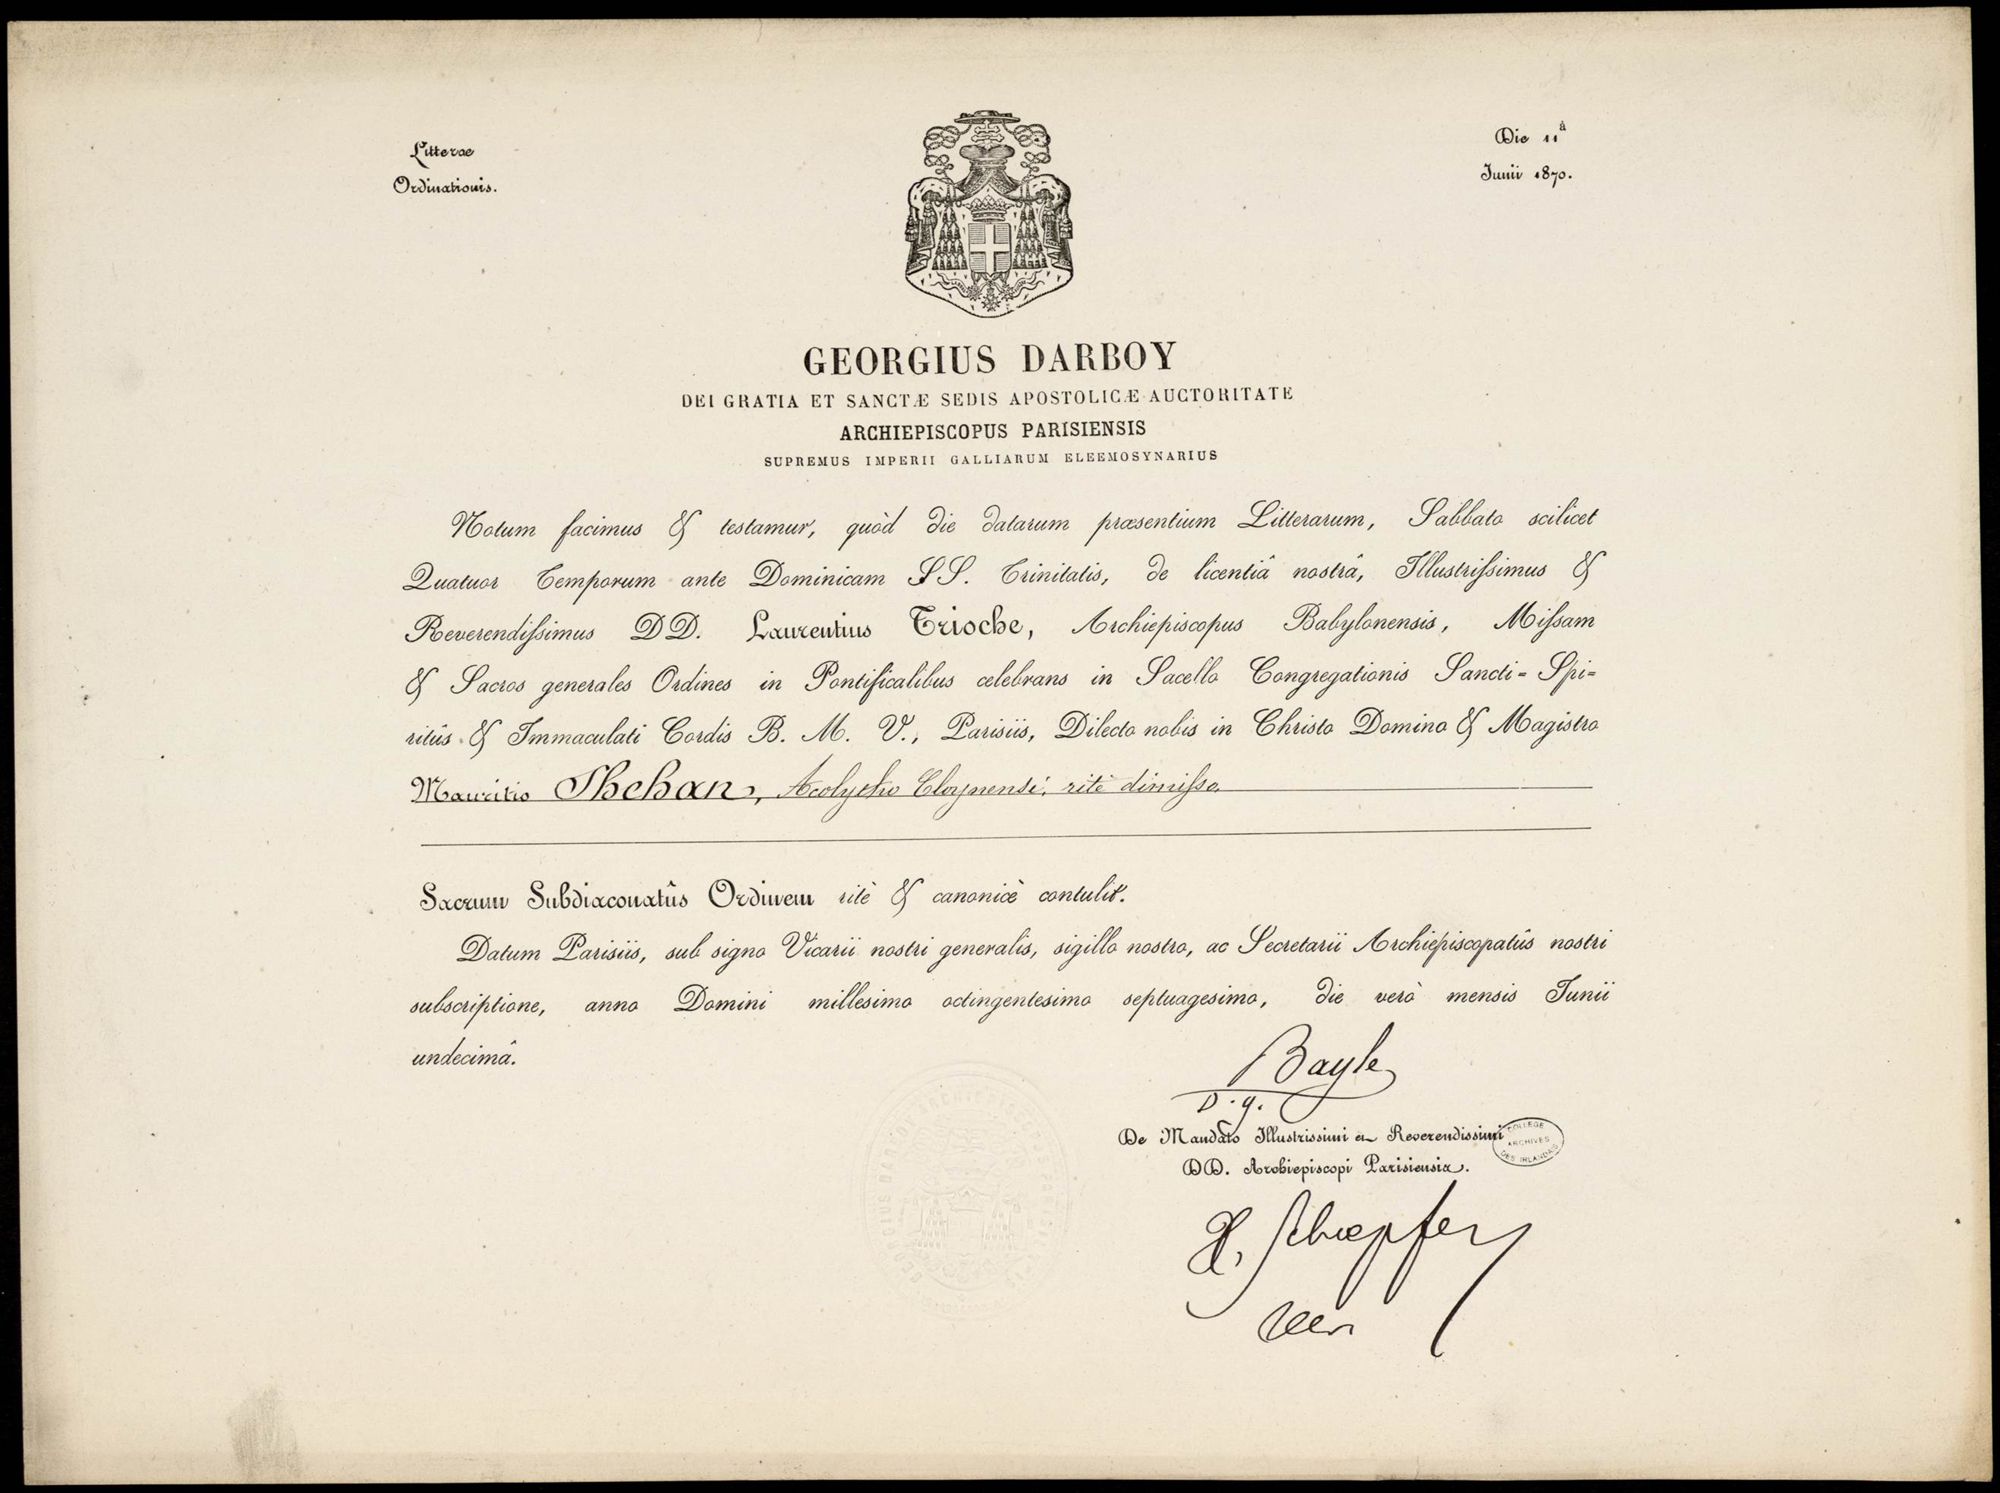 Litterae
Ordinationis.
Die 11ª
Junii 1870.
GEORGIUS DARBOY
DEI GRATIA ET SANCTÆ SEDIS APOSTOLICÆ AUCTORITATE
ARCHIEPISCOPUS PARISIENSIS
SUPREMUS IMPERII GALLIARUM ELEEMOSYNARIUS
Notum facimus & testamur, quòd die datarum præsentium Litterarum, Sabbato scilicet
Quatuor Temporum ante Dominicam SS. Trinitatis, de licentiâ nostrâ, Illustrissimus &
Reverendissimus DD. Laurentius Trioche, Archiepiscopus Babylonensis, Missam
& Sacros generales Ordines in Pontificalibus celebrans in Sacello Congregationis Sancti=Spi=
ritûs & Immaculati Cordis B. M. V., Parisiis, Dilecto nobis in Christo Domino & Magistro
Mauritio Shehan, Acolytho Cloynensi, ritè dimisso
Sacrum Subdiaconatûs Ordinem ritè & canonicè contulit.
Datum Parisiis, sub signo Vicarii nostri generalis, sigillo nostro, ac Secretarii Archiepiscopatûs nostri
subscriptione, anno Domini millesimo octingentesimo septuagesimo, die verò mensis Junii
undecimâ.
Bayle
v. g.
De Mandato Illustrissimi et Reverendissimi
DD. Archiepiscopi Parisiensis.
COLLEGE
ARCHIVES
DES IRLANDAIS
Schoepfer